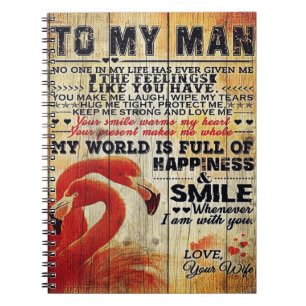 TO MY MAN
NO ONE IN MY LIFE HAS EVER GIVEN ME
THE FEELINGS
LIKE YOU HAVE.
YOU MAKE ME LAUGH, WIPE MY TEARS
HUG ME TIGHT, PROTECT ME,
KEEP ME STRONG AND LOVE ME
Your smile warms my heart
Your present makes me whole
MY WORLD IS FULL OF
HAPPINESS
&
SMILE
Whenever
I am with you.
LOVE,
Your Wife